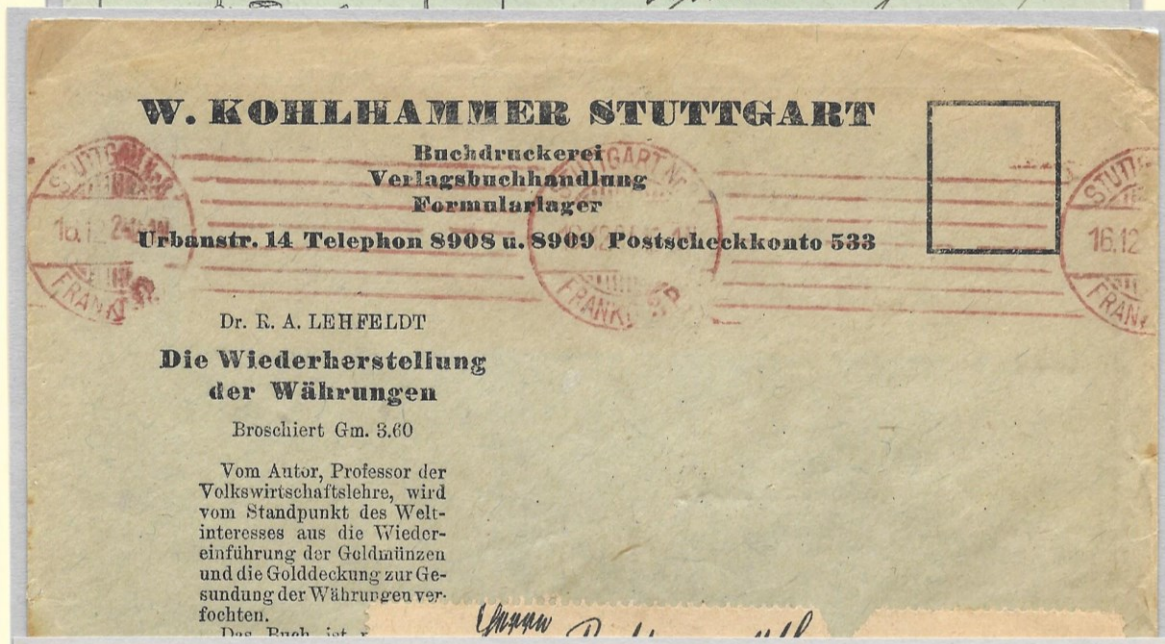 W. KOHLHAMMER STUTTGART
Buchdruckerei
Verlagsbuchhandlung
Formularlager
Urbanstr. 14 Telephon 8908 u. 8909 Postscheckkonto 533
STUTTGART No
16.12
FRANK
STUTTGART No
FRANK
STUTTG
16.12
FRAN
Dr. R. A. LEHFELDT
Die Wiederherstellung
der Währungen
Broschiert Gm. 3.60
Vom Autor, Professor der
Volkswirtschaftslehre, wird
vom Standpunkt des Welt-
interesses aus die Wieder-
einführung der Goldmünzen
und die Golddeckung zur Ge-
sundung der Währungen ver-
fochten.
Das Buch ist
Herrn